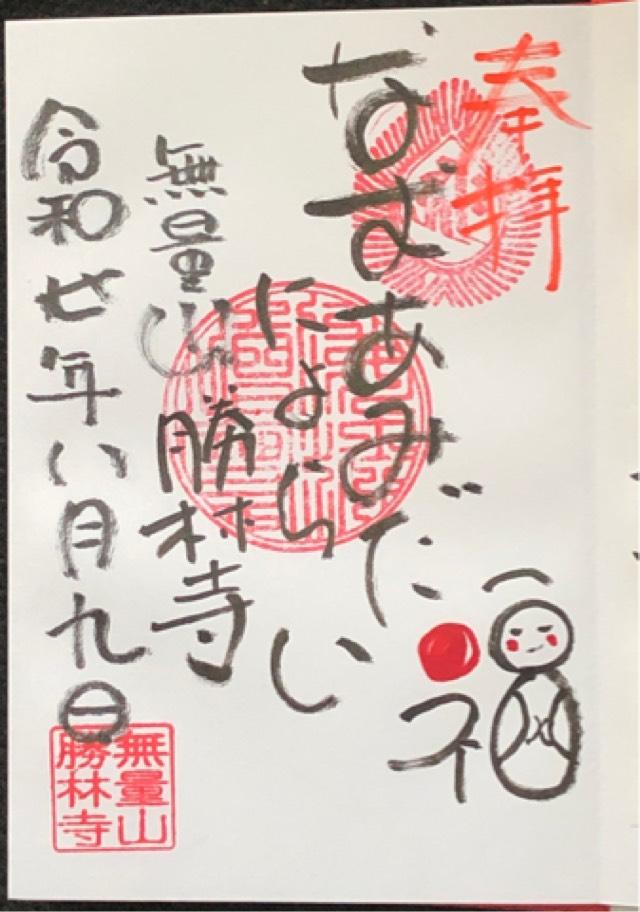 奉拝
なむあみだ
にょらい
無量山 勝林寺
令和七年八月九日
無量山
勝林寺